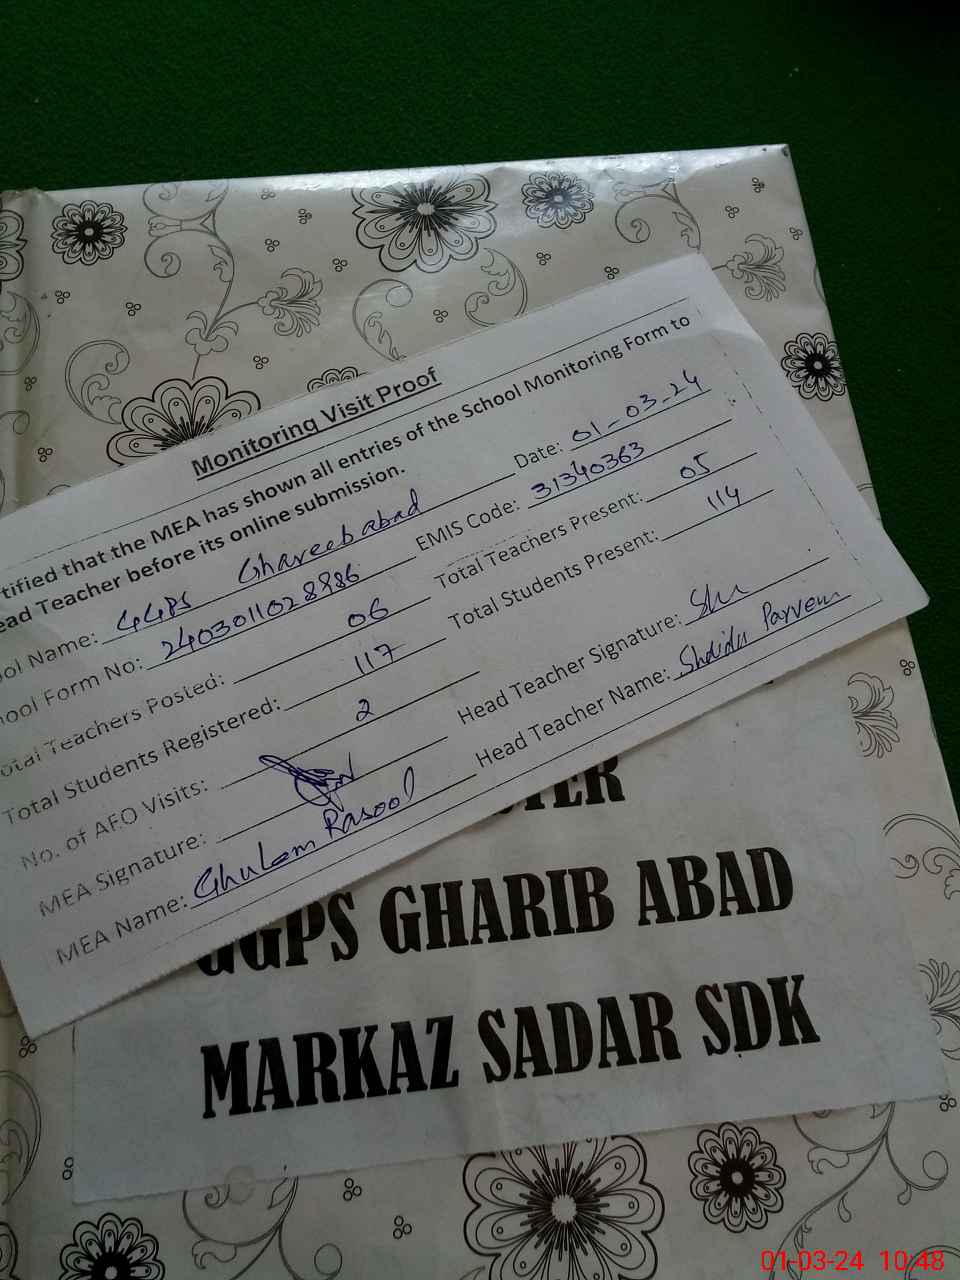 Monitoring Visit Proof
tified that the MEA has shown all entries of the School Monitoring Form to
ead Teacher before its online submission.
Date: 01-03-24
ool Name: GGPS Ghareebabad
EMIS Code: 31340363
hool Form No: 2403011028986
Total Teachers Present: 05
otal Teachers Posted: 06
Total Students Present: 114
Total Students Registered: 117
No. of AFO Visits: 2
Head Teacher Signature:
MEA Signature:
Head Teacher Name: Parveen
MEA Name: Ghulam Rasool
GGPS GHARIB ABAD
MARKAZ SADAR SDK
01-03-24 10:48